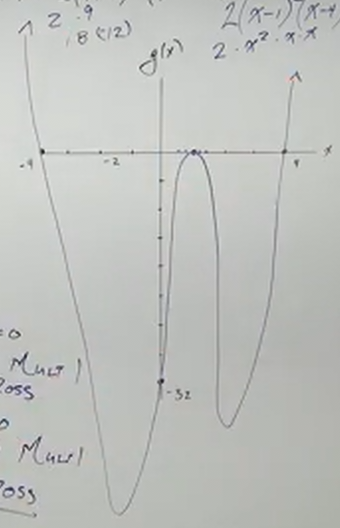 2 · 9
18 (12)
2(x-1) (x-4
2 · x² · x · x
g(x)
-4
-2
4
x
=0
Mult 1
oss
-32
0
Mult 1
oss